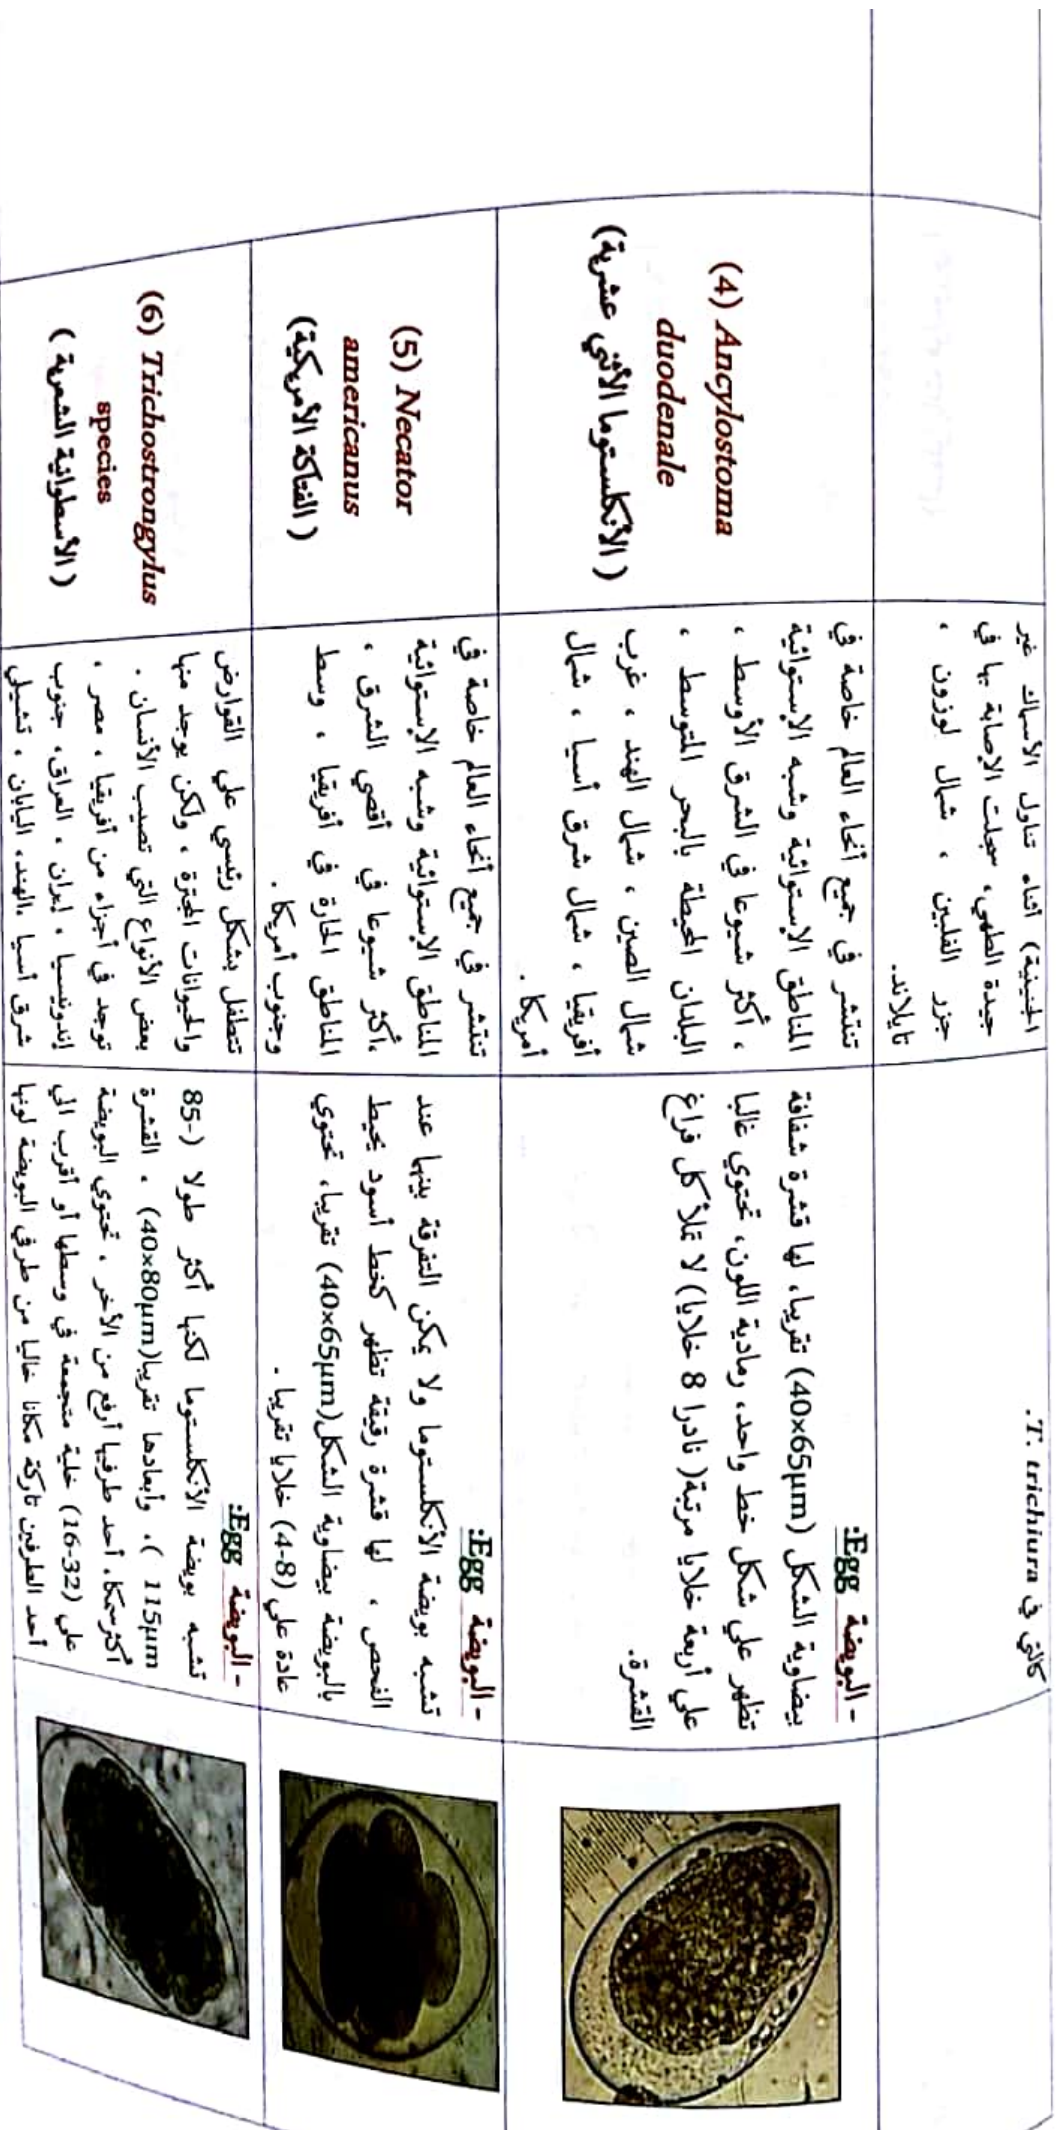 الجنينية) أثناء تناول الأسماك غير
جيدة الطهي، سجلت الإصابة بها في
جزر الفلبين ، شمال لوزون ،
تايلاند.
كالتي في T. trichiura.
(4) Ancylostoma
duodenale
(الأنكلستوما الأثني عشرية)
تنتشر في جميع أنحاء العالم خاصة في
المناطق الإستوائية وشبه الإستوائية
، أكثر شيوعا في الشرق الأوسط ،
البلدان المحيطة بالبحر المتوسط ،
شمال الصين ، شمال الهند ، غرب
أفريقيا ، شمال شرق أسيا ، شمال
أمريكا .
- البويضة Egg:
بيضاوية الشكل (40x65µm) تقريبا، لها قشرة شفافة
تظهر علي شكل خط واحد، رمادية اللون، تحتوي غالبا
علي أربعة خلايا مرتبة( نادرا 8 خلايا) لا تملأ كل فراغ
القشرة.
(5) Necator
americanus
(الفتاكة الأمريكية)
تنتشر في جميع أنحاء العالم خاصة في
المناطق الإستوائية وشبه الإستوائية
،أكثر شيوعا في أقصي الشرق ،
المناطق الحارة في أفريقيا ، وسط
وجنوب أمريكا .
- البويضة Egg:
تشبه بويضة الأنكلستوما ولا يمكن التفرقة بينهما عند
الفحص ، لها قشرة رقيقة تظهر كخط أسود يحيط
بالبويضة بيضاوية الشكل(40x65µm) تقريبا، تحتوي
عادة علي (4-8) خلايا تقريبا .
(6) Trichostrongylus
species
(الأسطوانية الشعرية )
تتطفل بشكل رئيسي علي القوارض
والحيوانات المجترة ، ولكن يوجد منها
بعض الأنواع التي تصيب الأنسان .
توجد في أجزاء من أفريقيا ، مصر ،
إندونسيا ، إيران ، العراق، جنوب
شرق أسيا ،الهند، اليابان ، تشيلي
- البويضة Egg:
تشبه بويضة الأنكلستوما لكنها أكثر طولا (85-
115µm )، وأبعادها تقريبا(40x80µm) . القشرة
أكثرسمكا، أحد طرفيها أرفع من الأخر ، تحتوي البويضة
علي (16-32) خلية متجمعة في وسطها أو أقرب الي
أحد الطرفين تاركة مكانا خاليا من طرفي البويضة لونها